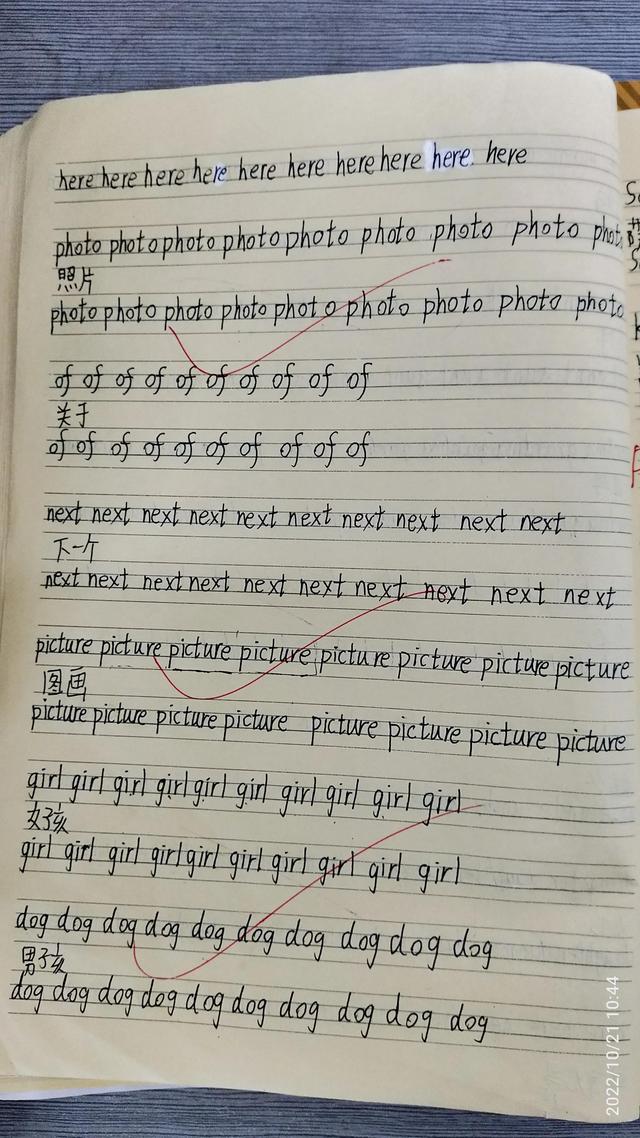 here here here here here here here here here. here
photo photo photo photo photo photo photo photo phot
照片
photo photo photo photo photo photo photo photo photo
of of of of of of of of of of
关于
of of of of of of of of of of
next next next next next next next next next next
下一个
next next next next next next next next next next
picture picture picture picture picture picture picture picture
图画
picture picture picture picture picture picture picture picture
girl girl girl girl girl girl girl girl girl girl
女孩
girl girl girl girl girl girl girl girl girl girl
dog dog dog dog dog dog dog dog dog dog
男孩
dog dog dog dog dog dog dog dog dog dog
2022/10/21 10:44